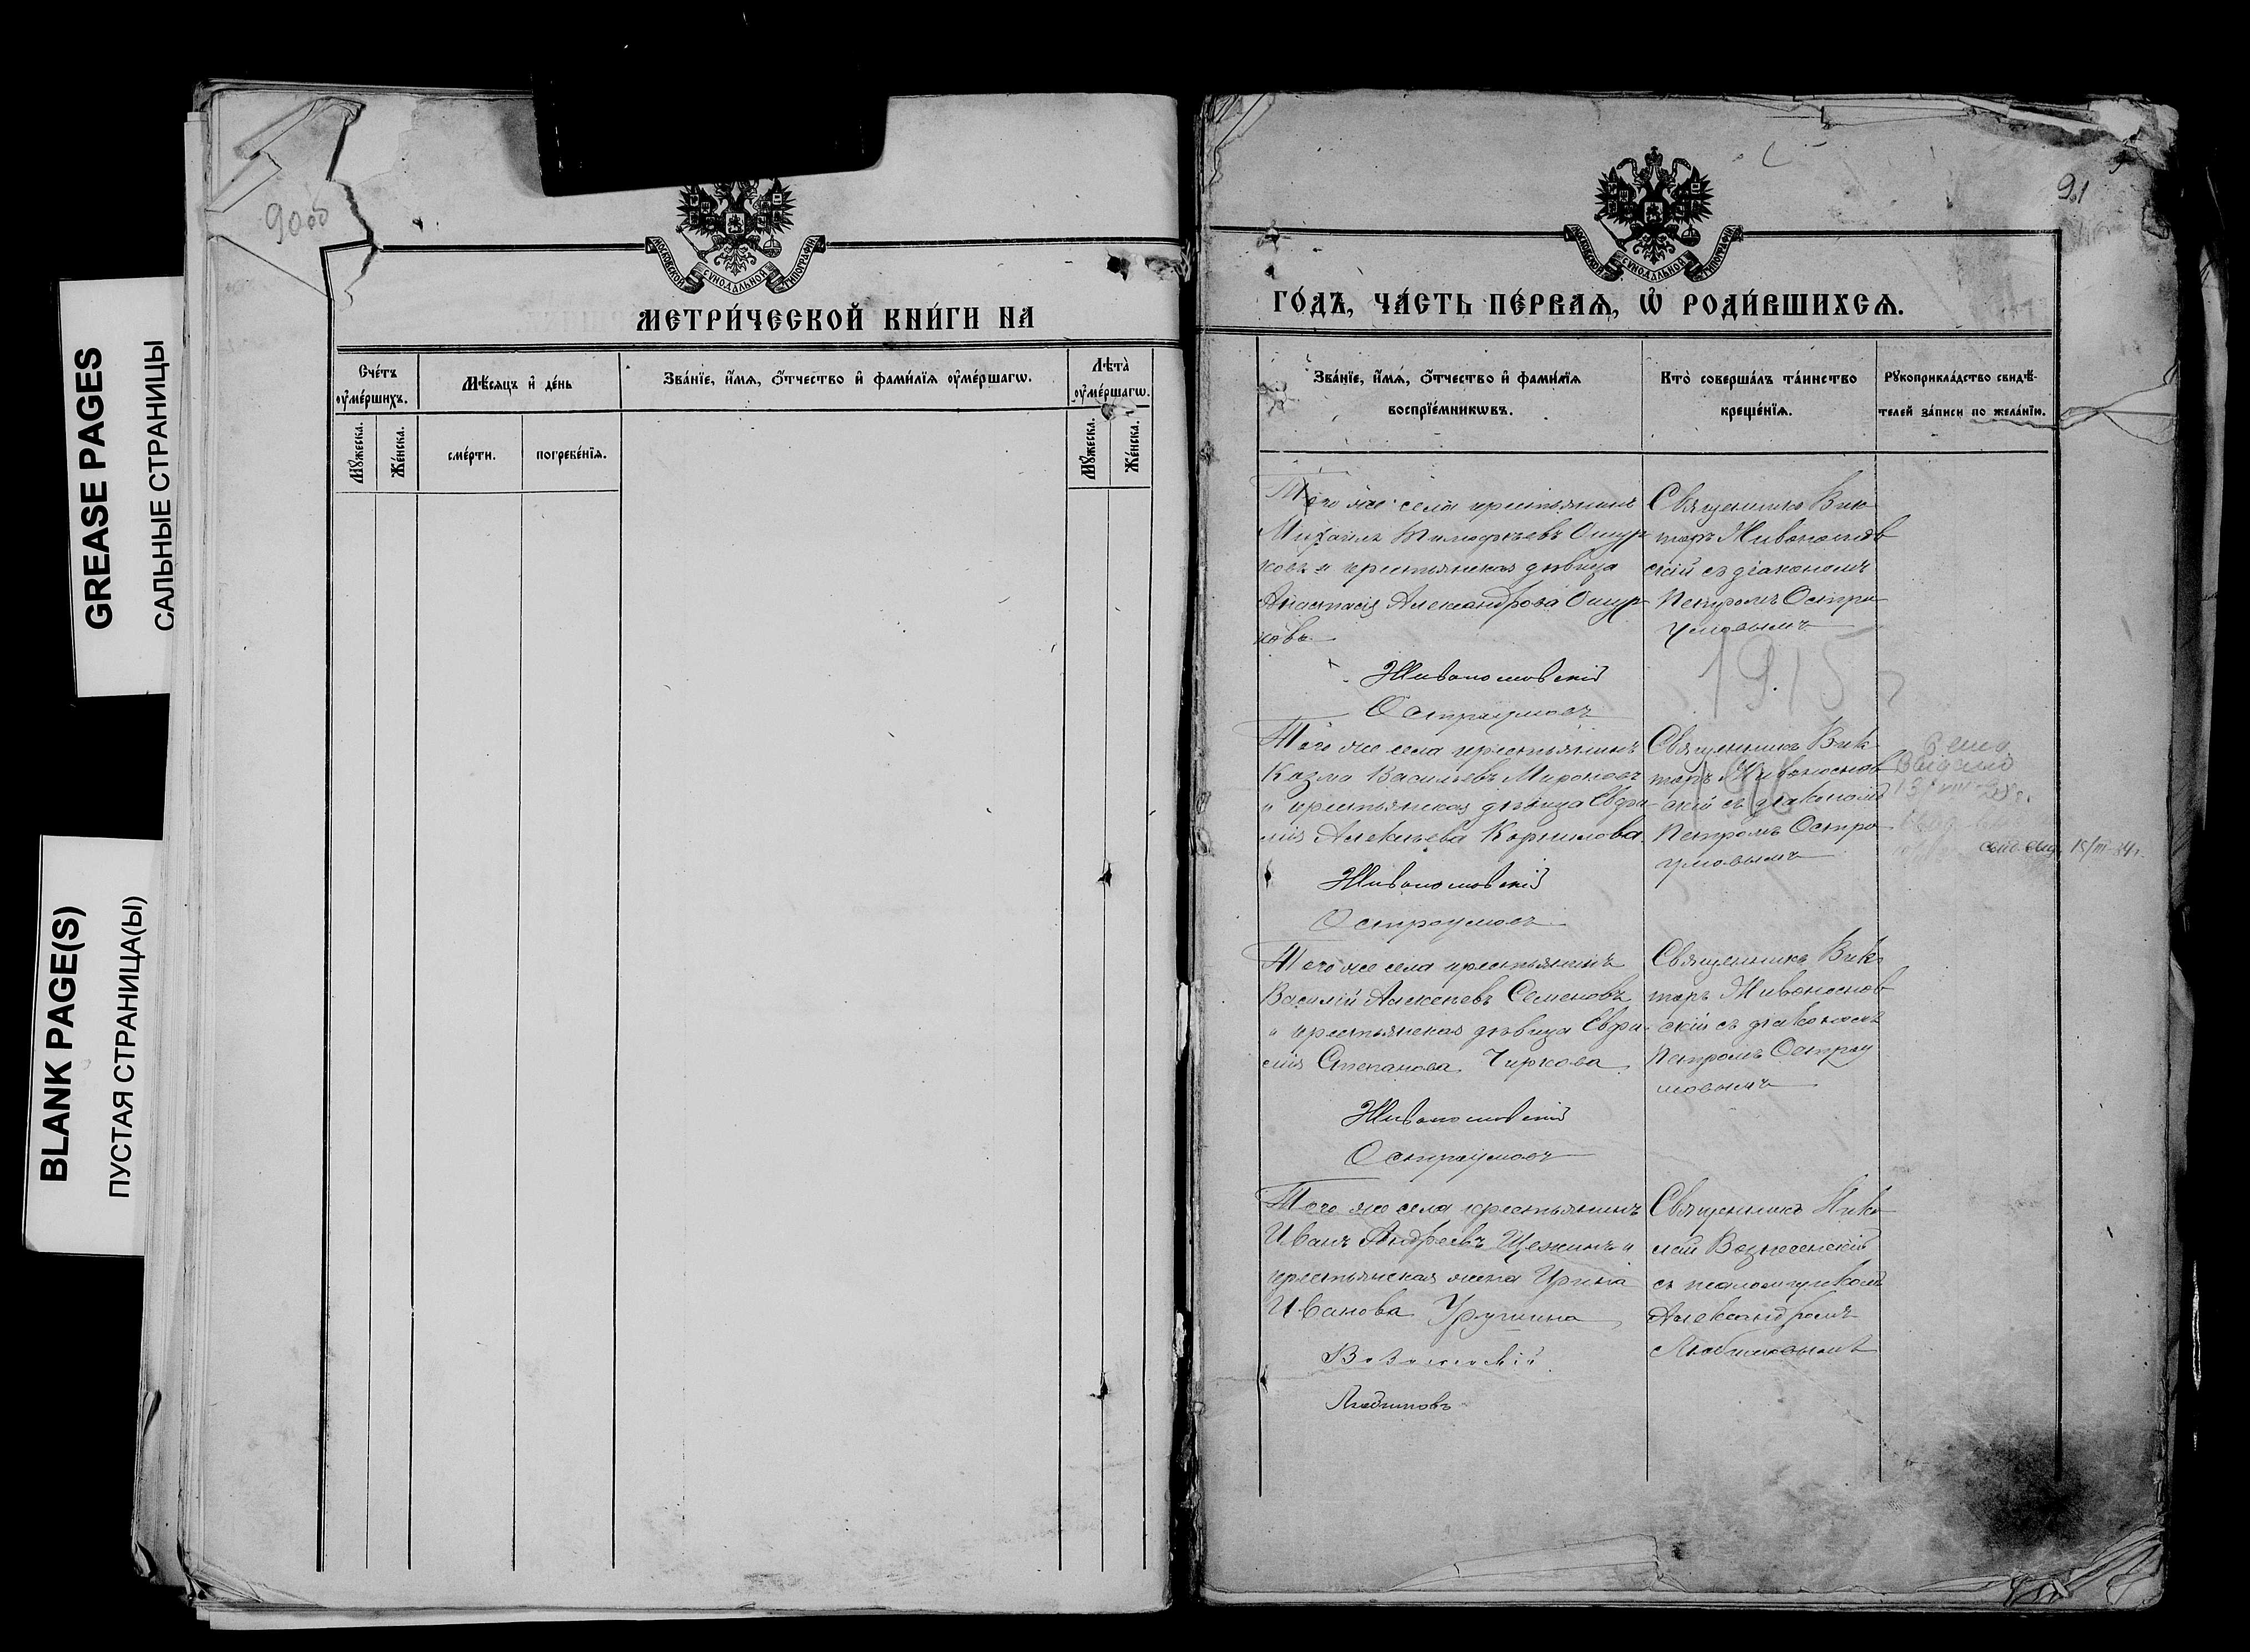 GREASE PAGES
САЛЬНЫЕ СТРАНИЦЫ
BLANK PAGE(S)
ПУСТАЯ СТРАНИЦА(Ы)
90об
МОСКОВСКОЙ СѴНОДАЛЬНОЙ ТИПОГРАФІИ
МЕТРИ́ЧЕСКОЙ КНИ́ГИ НА
Счéтъ ᲂу҆мéршихъ.
Мѣ́сяцъ и҆ дéнь
Звáнїе, и҆́мѧ, ѻ҆́тчество и҆ фами́лїѧ ᲂу҆мéршагѡ.
Лѣтà ᲂу҆мéршагѡ.
Мꙋ́жеска.
Жéнска.
смéрти.
погребéнїѧ.
Мꙋ́жеска.
Жéнска.
91
МОСКОВСКОЙ СѴНОДАЛЬНОЙ ТИПОГРАФІИ
ГО́ДЪ, ЧА́СТЬ ПЕ́РВАѦ, Ѡ҆ РОДИ́ВШИХСѦ.
Звáнїе, и҆́мѧ, ѻ҆́тчество и҆ фами́лїѧ
воспрїéмникѡвъ.
Ктò совершáлъ тáинство
крещéнїѧ.
Рꙋкоприклáдство свидѣ́-
телей зáписи по желáнїю.
Того же села крестьянинъ
Михаилъ Тимофѣевъ Ошур
ковъ и крестьянская дѣвица
Анастасія Александрова Ошур
кова
Живоносновскій
Остроумовъ
Священникъ Вик
торъ Живоноснов
скій съ діакономъ
Петромъ Остро
умовымъ
1915
Того же села крестьянинъ
Казма Васильевъ Мироновъ
и крестьянская дѣвица Евфи
мія Алексѣева Корнилова.
Живоносновскій
Остроумовъ
Священникъ Вик
торъ Живоноснов
скій съ діакономъ
Петромъ Остро
умовымъ
Выдано
15/III-24г.
Того же села крестьянинъ
Василій Алексѣевъ Семеновъ
и крестьянская дѣвица Евфи
мія Степанова Чиркова
Живоносновскій
Остроумовъ
Священникъ Вик
торъ Живоноснов
скій съ діакономъ
Петромъ Остроу
мовымъ
Того же села крестьянинъ
Иванъ Андреевъ Щекинъ и
крестьянская жена Ирина
Иванова
Вознесенскій
Священникъ Нико
лай Вознесенскій
съ псаломщикомъ
Александромъ